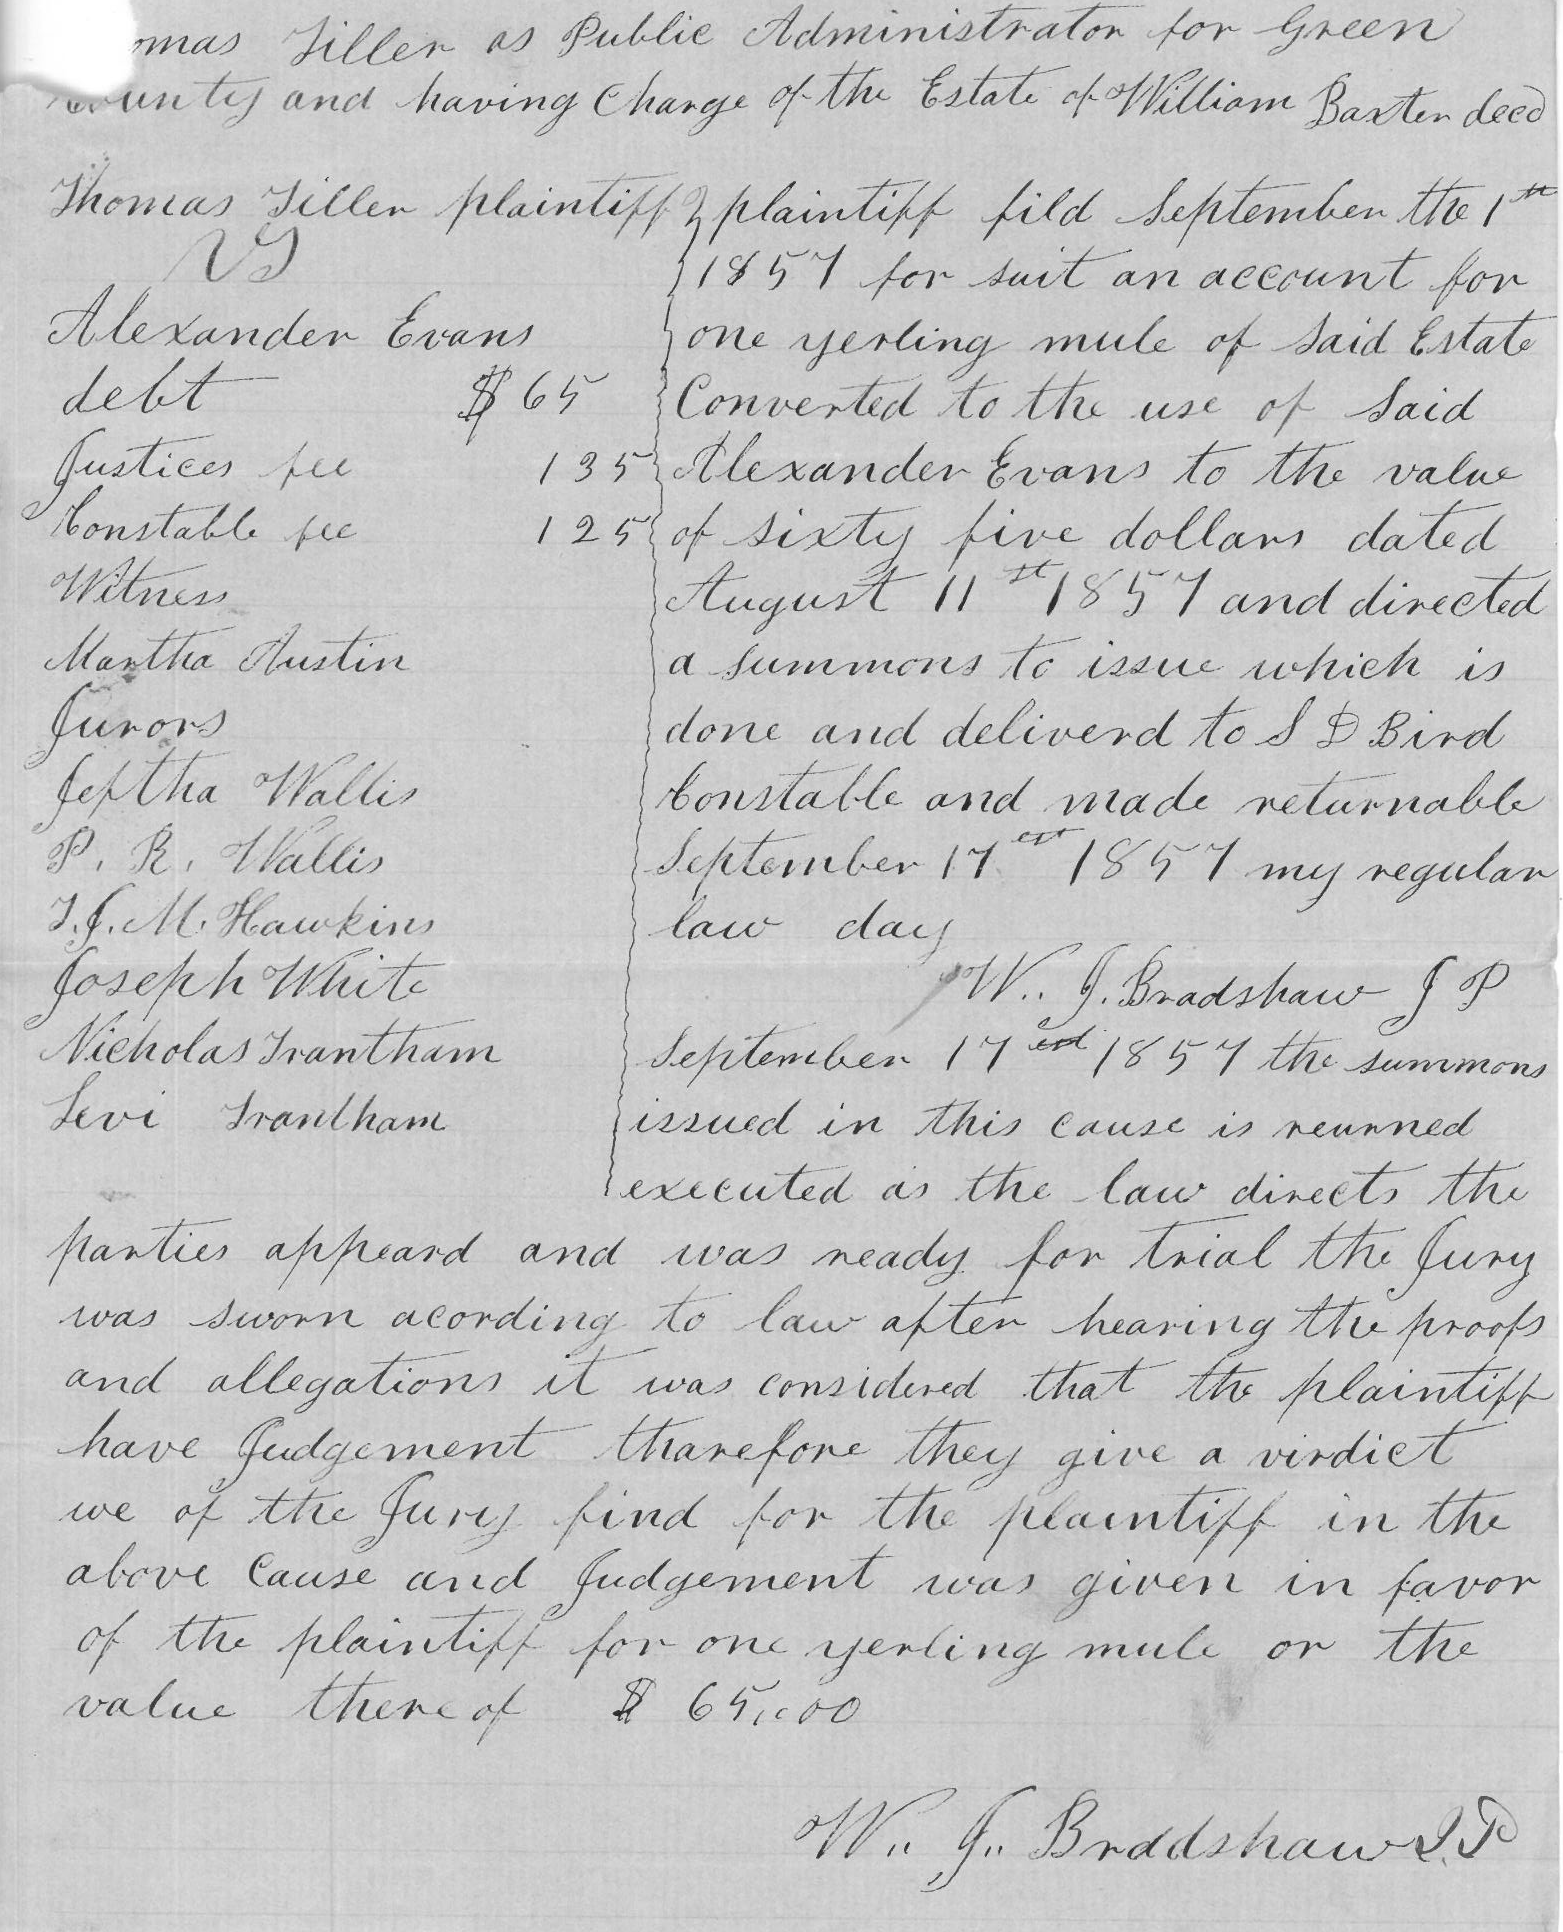 omas Tiller as Public Administrator for Green
County and having Charge of the Estate of William Baxter decd
Thomas Tiller plaintiff
VS
Alexander Evans
debt $ 65
Justices fee 1 35
Constable fee 1 25
Witness
Martha Austin
Jurors
Jeptha Wallis
P. R. Wallis
T. J. M. Hawkins
Joseph White
Nicholas Trantham
Levi Trantham
plaintiff fild September the 1th
1857 for suit an account for
one yerling mule of said Estate
Converted to the use of said
Alexander Evans to the value
of sixty five dollars dated
August 11st 1857 and directed
a summons to issue which is
done and deliverd to S D Bird
Constable and made returnable
September 17 1857 my regular
law day
W.. J. Bradshaw J P
September 17 1857 the summons
issued in this cause is reurned
executed as the law directs the
parties appeard and was ready for trial the Jury
was sworn acording to law after hearing the proofs
and allegations it was considered that the plaintiff
have Judgement tharefore they give a virdict
we of the Jury find for the plaintiff in the
above Cause and Judgement was given in favor
of the plaintiff for one yerling mule or the
value thereof $ 65,,00
W,, J,, Bradshaw J.P